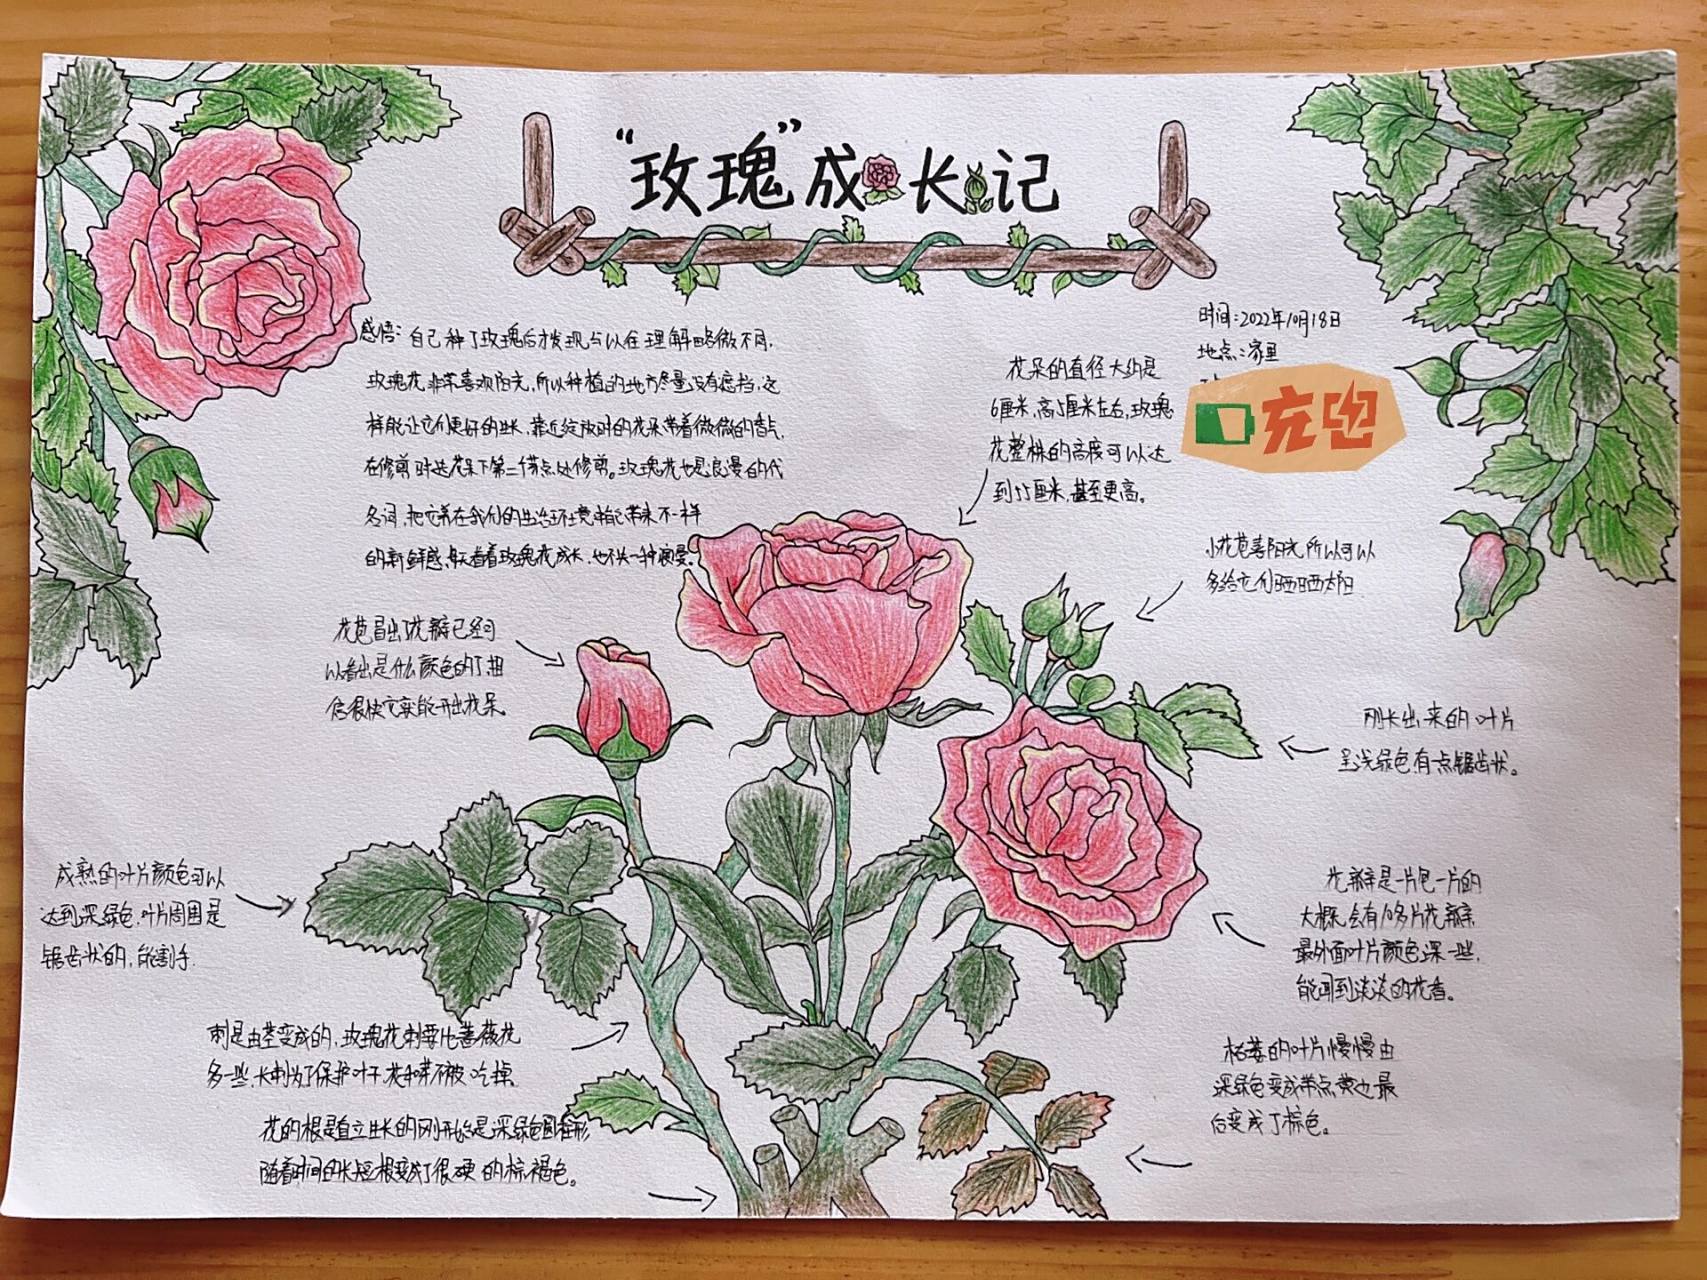 “玫瑰”成长记
时间:2022年10月18日
地点:家里
充电
感悟:自己种了玫瑰后才发现与以往理解略微不同,
玫瑰花非常喜欢阳光,所以种植的地方尽量没有遮挡,这
样能让它们更好的生长,靠近绽放时的花朵带着微微的香气,
在修剪时选花朵下第二个节点处修剪。玫瑰花也是浪漫的代
名词,把它养在我们的生活环境中能带来不一样
的新鲜感,每天看着玫瑰花成长,也不失一种浪漫。
花朵的直径大约是
6厘米,高5厘米左右,玫瑰
花整株的高度可以达
到55厘米,甚至更高。
小花苞喜阳光所以可以
多给它们晒晒太阳
花苞冒出了花瓣已经可
以看出是什么颜色的了,相
信很快它就能开出花朵。
刚长出来的叶片
呈浅绿色有一点锯齿状。
成熟的叶片颜色可以
达到深绿色,叶片周围是
锯齿状的,能割手.
花瓣是一片包一片的
大概会有10多片花瓣
最外面叶片颜色深一些,
能闻到淡淡的花香。
刺是由茎变成的,玫瑰花刺要比蔷薇花
多一些,长刺为了保护叶子,花和芽不被吃掉.
枯萎的叶片慢慢由
深绿色变成带点黄色最
后变成了棕色。
花的根是直立生长的刚开始是深绿色圆柱形
随着时间的长短根变成了很硬的棕褐色。